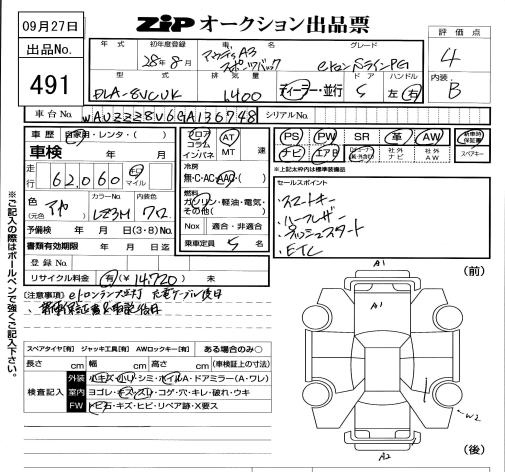 09月27日
ZiP オークション出品票
出品No.
491
評価点
4
内装
B
年式
初年度登録
28年8月
車名
アウディA3
スポーツバック
グレード
etronSラインPG
型式
DLA-8VCUK
排気量
1400
ディーラー・並行
ドア
5
ハンドル
左・右
車台No.
WAUZZZ8V6GA136748
シリアルNo.
車歴
自家用・レンタ・( )
車検 年 月
走行
62,060
km
マイル
色
(元色)
カラーNo.
内装色
予備検 年 月 日(3・8)No.
書類有効期限 年 月 日迄
登録No.
リサイクル料金
有(¥14,720) 未
フロア
コラム
インパネ
AT
MT
速
冷房
無・C・AC・AAC・( )
燃料
ガソリン・軽油・電気・
その他( )
Nox
適合・非適合
乗車定員 5名
PS
PW
SR
革
AW
新車時
保証書
ナビ
エアB
社外
ナビ
社外
AW
スペアキー
※上記太枠内は標準装備品
セールスポイント
・スマートキー
・ハーフレザー
・プッシュスタート
・ETC
(注意事項)
スペアタイヤ[有] ジャッキ工具[有] AWロックキー[有] ある場合のみ○
長さ cm 幅 cm 高さ cm (車検証上の寸法)
検査記入
外装
小キズ・小凹・シミ・ホイルA・ドアミラー(A・ワレ)
室内
ヨゴレ・キズ・スリ・コゲ・穴・キレ・破れ・ウキ
FW
トビ石・キズ・ヒビ・リペア跡・X要ス
※ご記入の際はボールペンで強くご記入下さい。
(前)
A1
A1
W2
A2
(後)